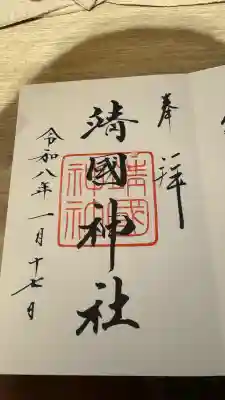 奉拝
靖國神社
靖國神社
令和八年一月十七日